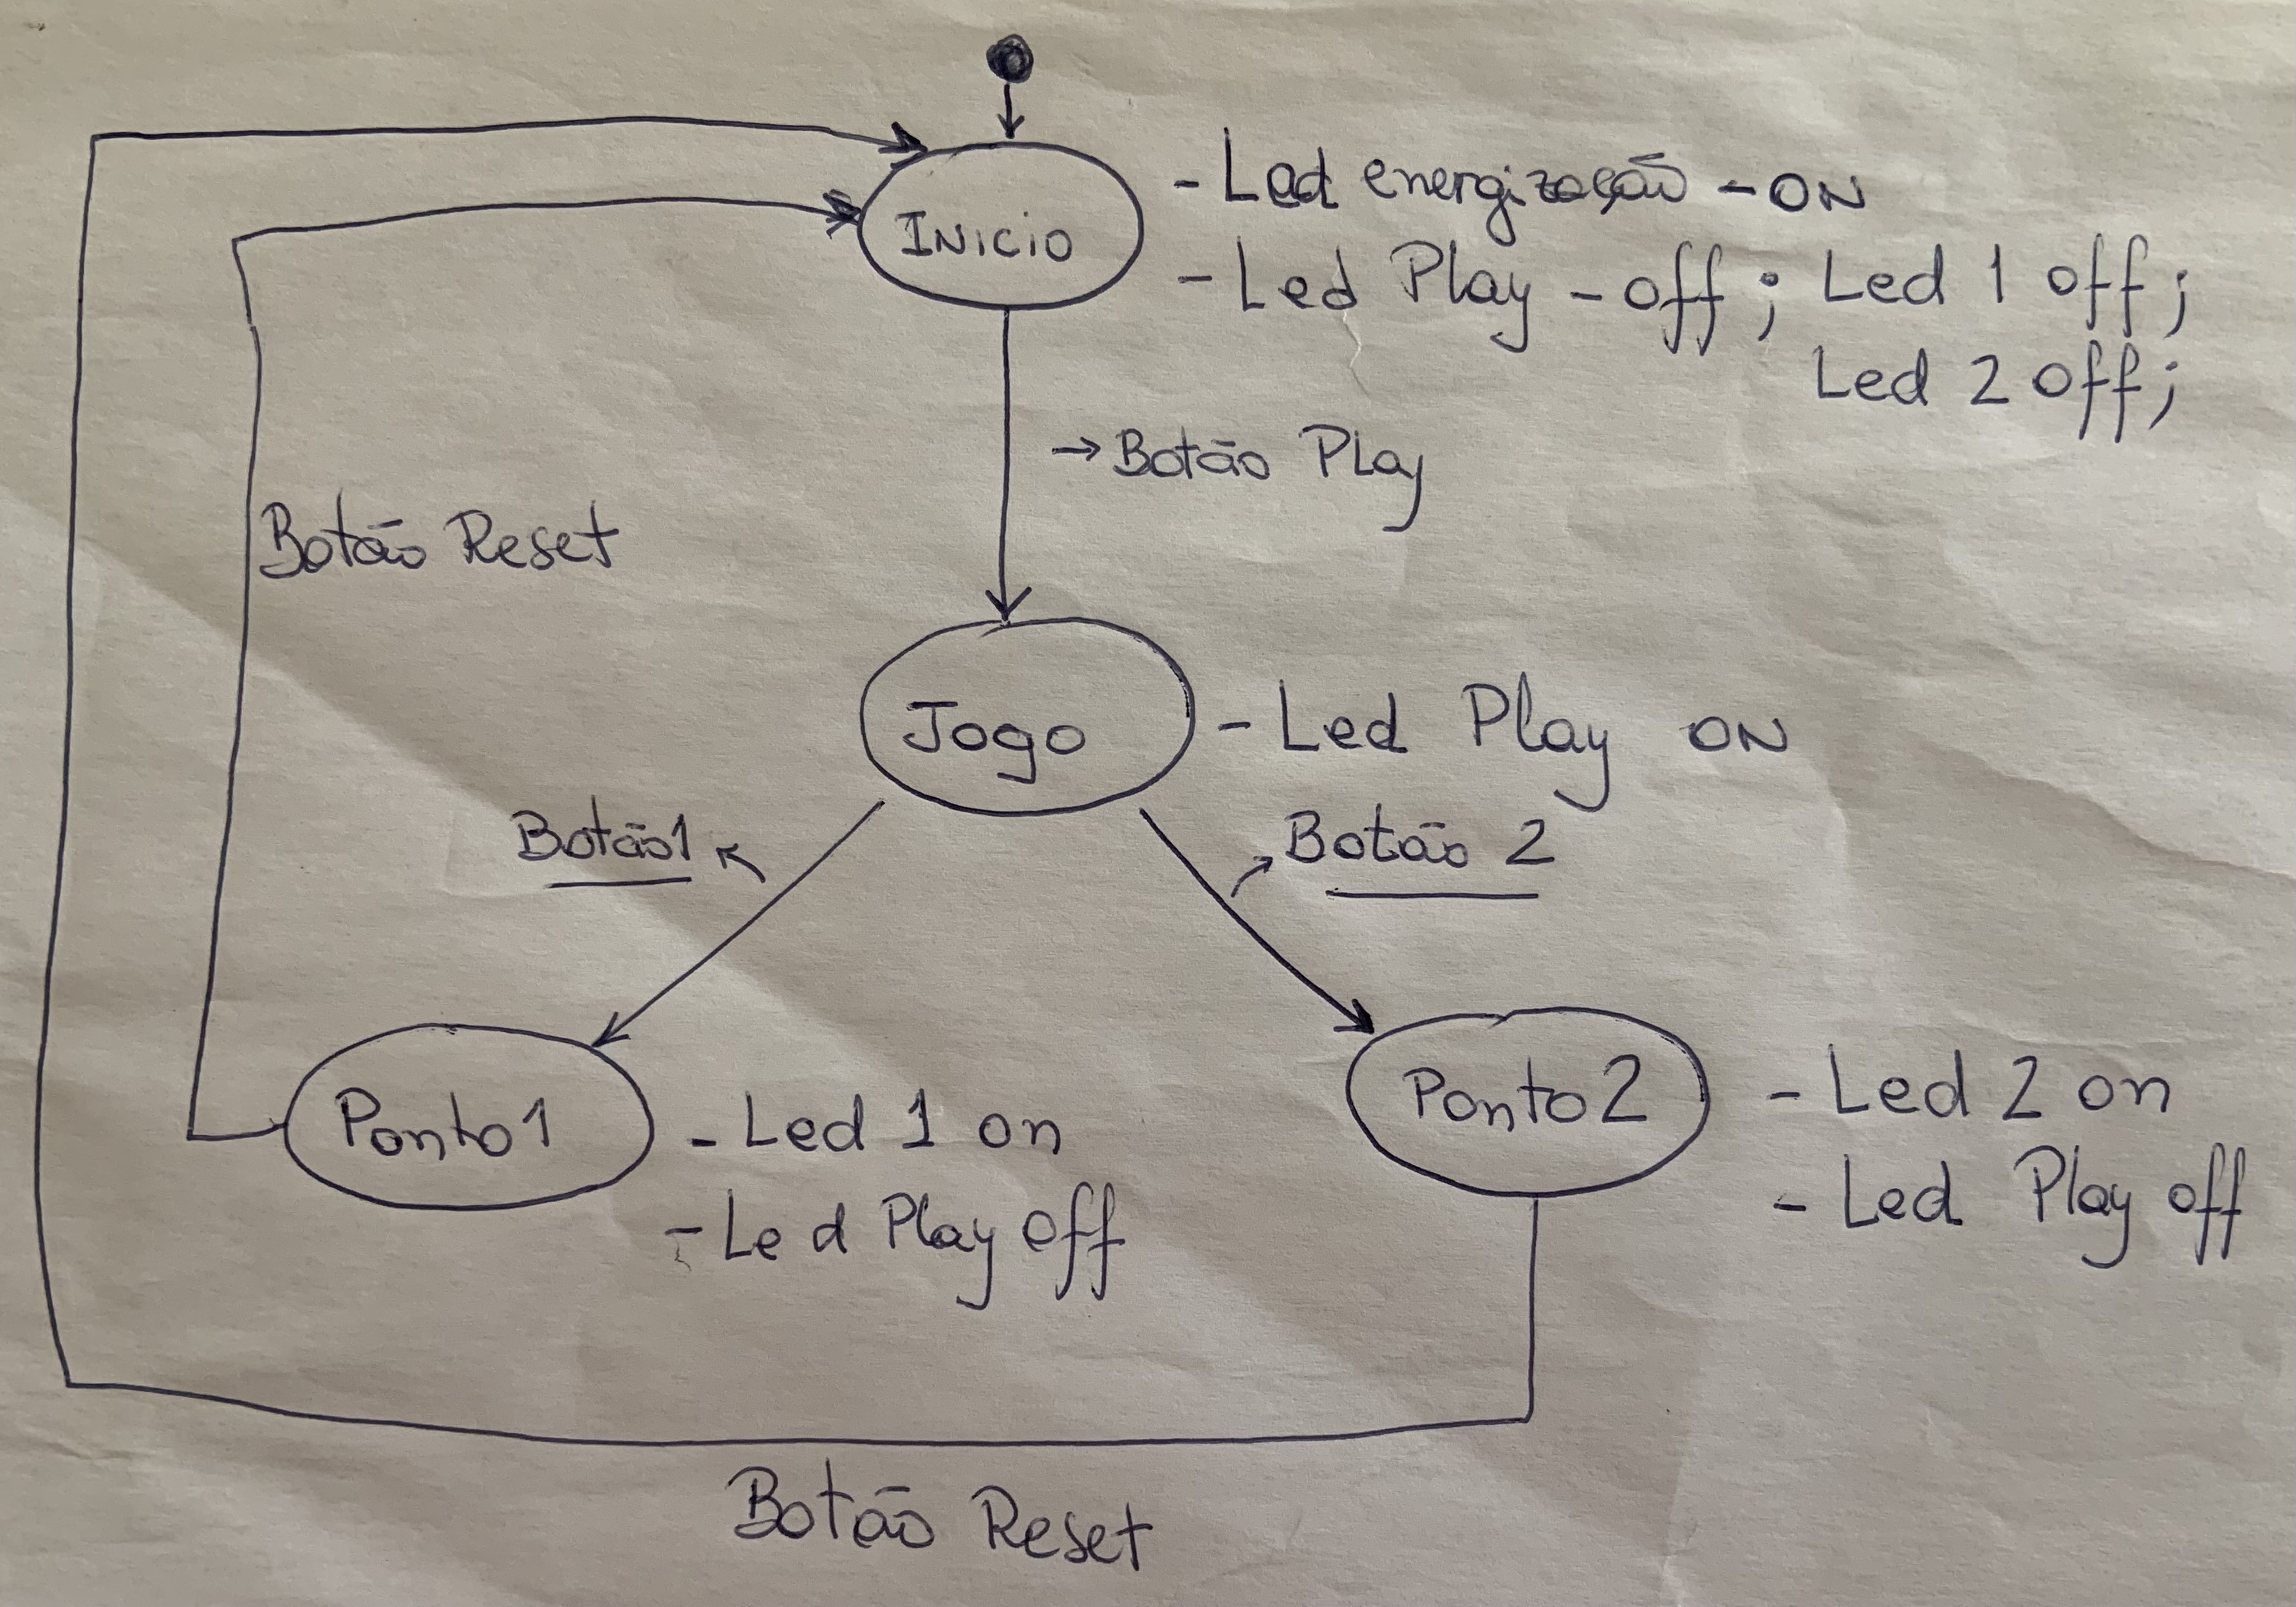 INICIO
- Led energização - ON
- Led Play - off ; Led 1 off ;
Led 2 off ;
→ Botão Play
Botão Reset
Jogo
- Led Play ON
Botão1
Botão 2
Ponto1
- Led 1 on
- Led Play off
Ponto2
- Led 2 on
- Led Play off
Botão Reset